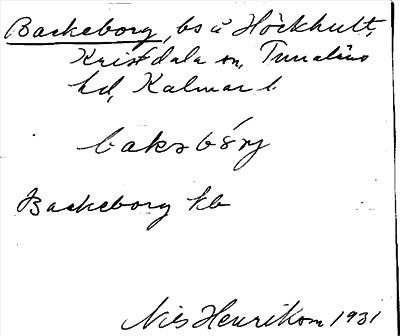 Backeborg, bs å Höckhult,
Kristdala sn, Tunaläns
hd, Kalmar l.
baksbórj
Backeborg kb
Nils Henrikson 1931